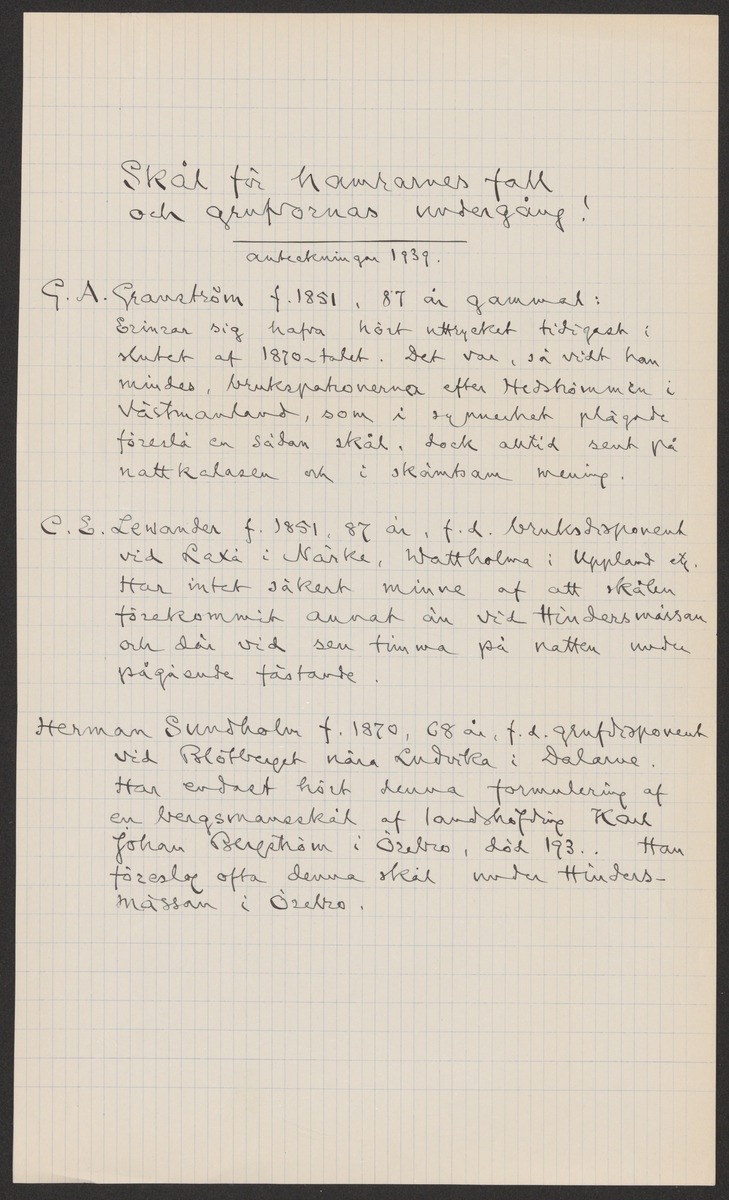 Skål för hamrarnes fall
och grufvornas undergång!
anteckningar 1939.
G. A. Granström f. 1851, 87 år gammal:
Erinrar sig hafva hört uttrycket tidigast i
slutet af 1870-talet. Det var, så vidt han
mindes, brukspatronerna efter Hedströmmen i
Västmanland, som i synnerhet plägade
föreslå en sådan skål, dock alltid sent på
nattkalasen och i skämtsam mening.
C. E. Lewander f. 1851, 87 år, f.d. bruksdisponent
vid Laxå i Närke, Wattholma i Uppland etc.
Har intet säkert minne af att skålen
förekommit annat än vid Hindersmässan
och där vid sen timma på natten under
pågående fästande.
Herman Sundholm f. 1870, 68 år, f.d. grufdisponent
vid Blötberget nära Ludvika i Dalarne.
Har endast hört denna formulering af
en bergsmansskål af landshöfding Karl
Johan Bergström i Örebro, död 193.. Han
föreslog ofta denna skål under Hinders-
mässan i Örebro.